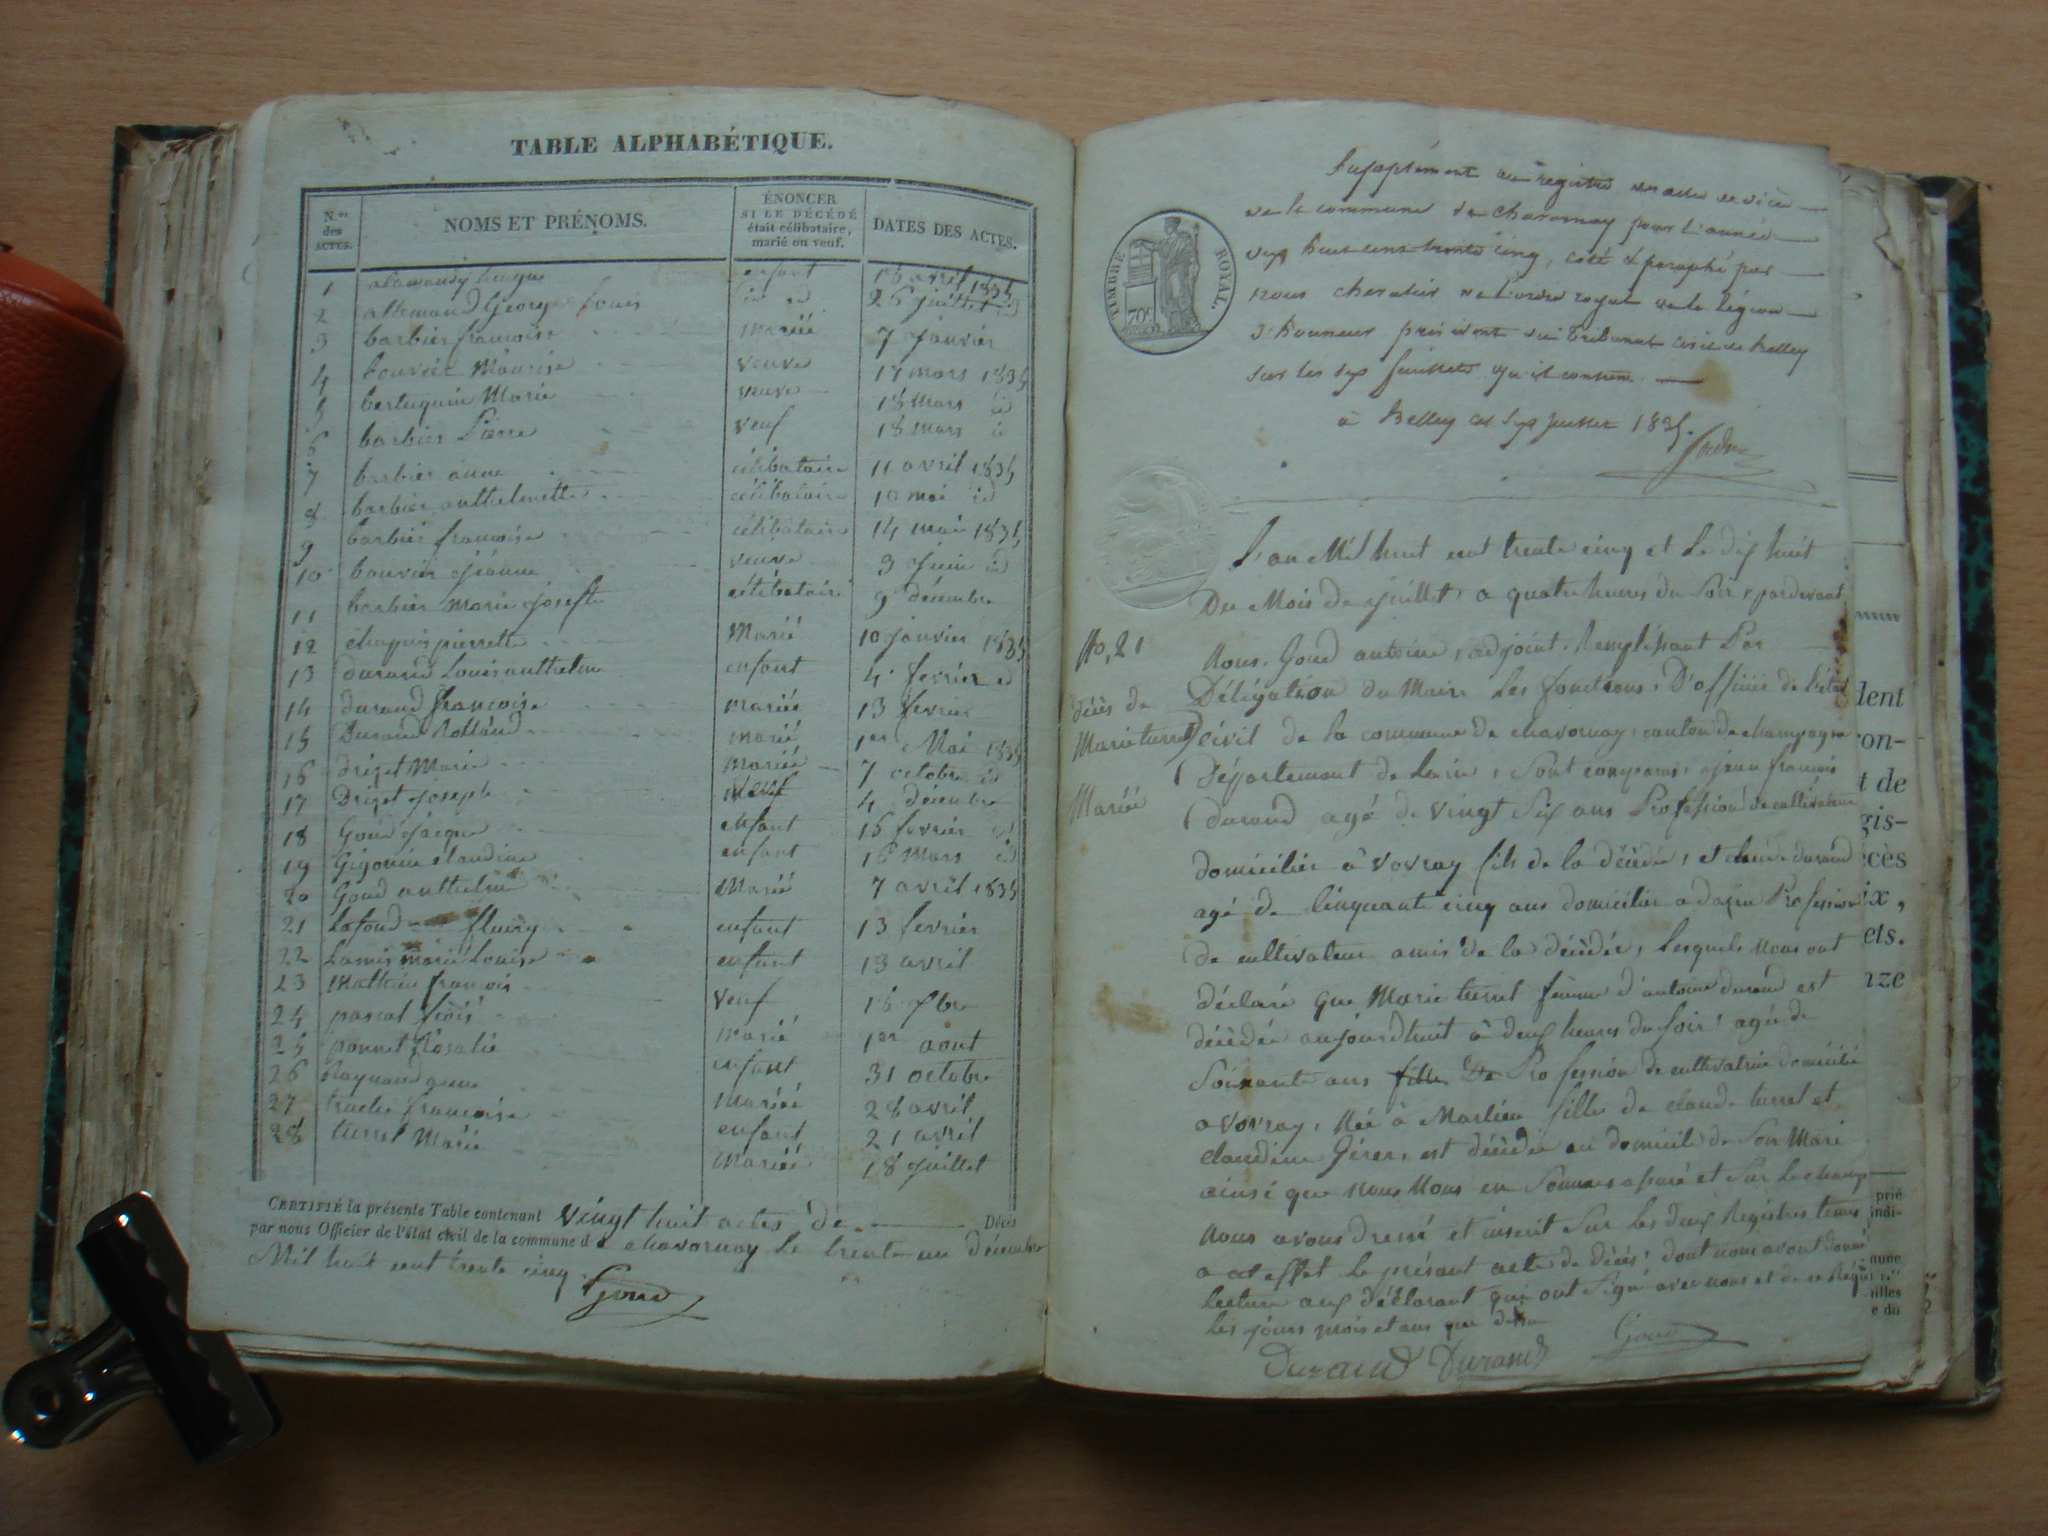 TABLE ALPHABÉTIQUE.
N.os des ACTES.
NOMS ET PRÉNOMS.
ÉNONCER SI LE DÉCÉDÉ était célibataire, marié ou veuf.
DATES DES ACTES.
1 enfant 16 avril 1835
2 allemand George Louis id id 26 juillet id
3 barbier françoise mariée 7 janvier
4 bouvier Maurise veuve 17 mars 1835
5 Marie veuve 18 mars id
6 barbier Pierre veuf 18 mars id
7 barbier anne célibataire 11 avril 1835
8 barbier anthelmette célibataire 10 mai id
9 barbier françoise célibataire 14 mai 1835
10 bouvier jeanne veuve 3 juin id
11 barbier marie josefte célibataire 9 décembre
12 chapuis pierrette Marié 10 janvier 1835
13 durand Louis anthelme enfant 4 fevrier id
14 durand françoise mariée 13 fevrier
15 Durand marié 1er Mai 1835
16 drizet Marie mariée 7 octobre id
17 Drizet joseph veuf 4 décembre
18 Goud jacque enfant 15 fevrier id
19 Gigonin claudine enfant 16 Mars id
20 Goud anthelme Marié 7 avril 1835
21 Lafond fleury enfant 13 fevrier
22 marie Louise enfant 19 avril
23 Mathieu françois veuf
24 pascal marié 1er aout
25 ponnet Rosalie enfant 31 octobre
26 Raynaud mariée 28 avril
27 françoise enfant 21 avril
28 turrel Marie Mariée 18 juillet
CERTIFIÉ la présente Table contenant vingt huit actes de Décès
par nous Officier de l'état civil de la commune d e chavornay le trente un décembre
Mil huit cent trente cinq
Goud
Supplément au registre
de la commune de chavornay pour l'année
dix huit cent trente cinq, coté & paraphé par
nous chevalier de l'ordre royal de la légion
d'honneur président du tribunal civil de Belley
sur les six feuillets qu'il contient.
à Belley 1835.
TIMBRE ROYAL.
70c
L'an Mil huit cent trente cinq et Le dix huit
Du Mois de juillet, a quatre heures du Soir, pardevant
Nous. Goud antoine, adjoint. Remplissant Par
Délégation du Maire Les fonctions, D'officié de l'état
civil de la commune de chavornay, canton de champagne
Département de Lain, Sont comparus, jean françois
durand agé de vingt Six ans Profession de cultivateur
domicilier à vovray fils de la décédée, et claude durand
agé de Cinquante cinq ans domicilier a dazin Profession
de cultivateur amis de la décédée, Lesquels Nous ont
déclaré que Marie turrel femme d'antoine durand est
décédée aujourdhuit à deux heures du soir, agée de
Soixante ans fille De Profession de cultivatrice domicilié
a vovray, Née à Marlieu fille de claude turrel et
claudine est décédée au domicil de Son Mari
ainsi que nous Nous en Sommes et Sur Le champ
Nous avons dressé et inscrit Sur Les deux Registres tenus
a cet effet Le présant acte de décès, dont nous avont donné
Lecture aux déclarant qui ont Signé avec nous
Les jours mois et ans que dessus
Durand Durand Goud
No, 21
décès de
Marie turrel
Mariée
dent
on-
t de
gis-
cès
ix,
ets.
nze